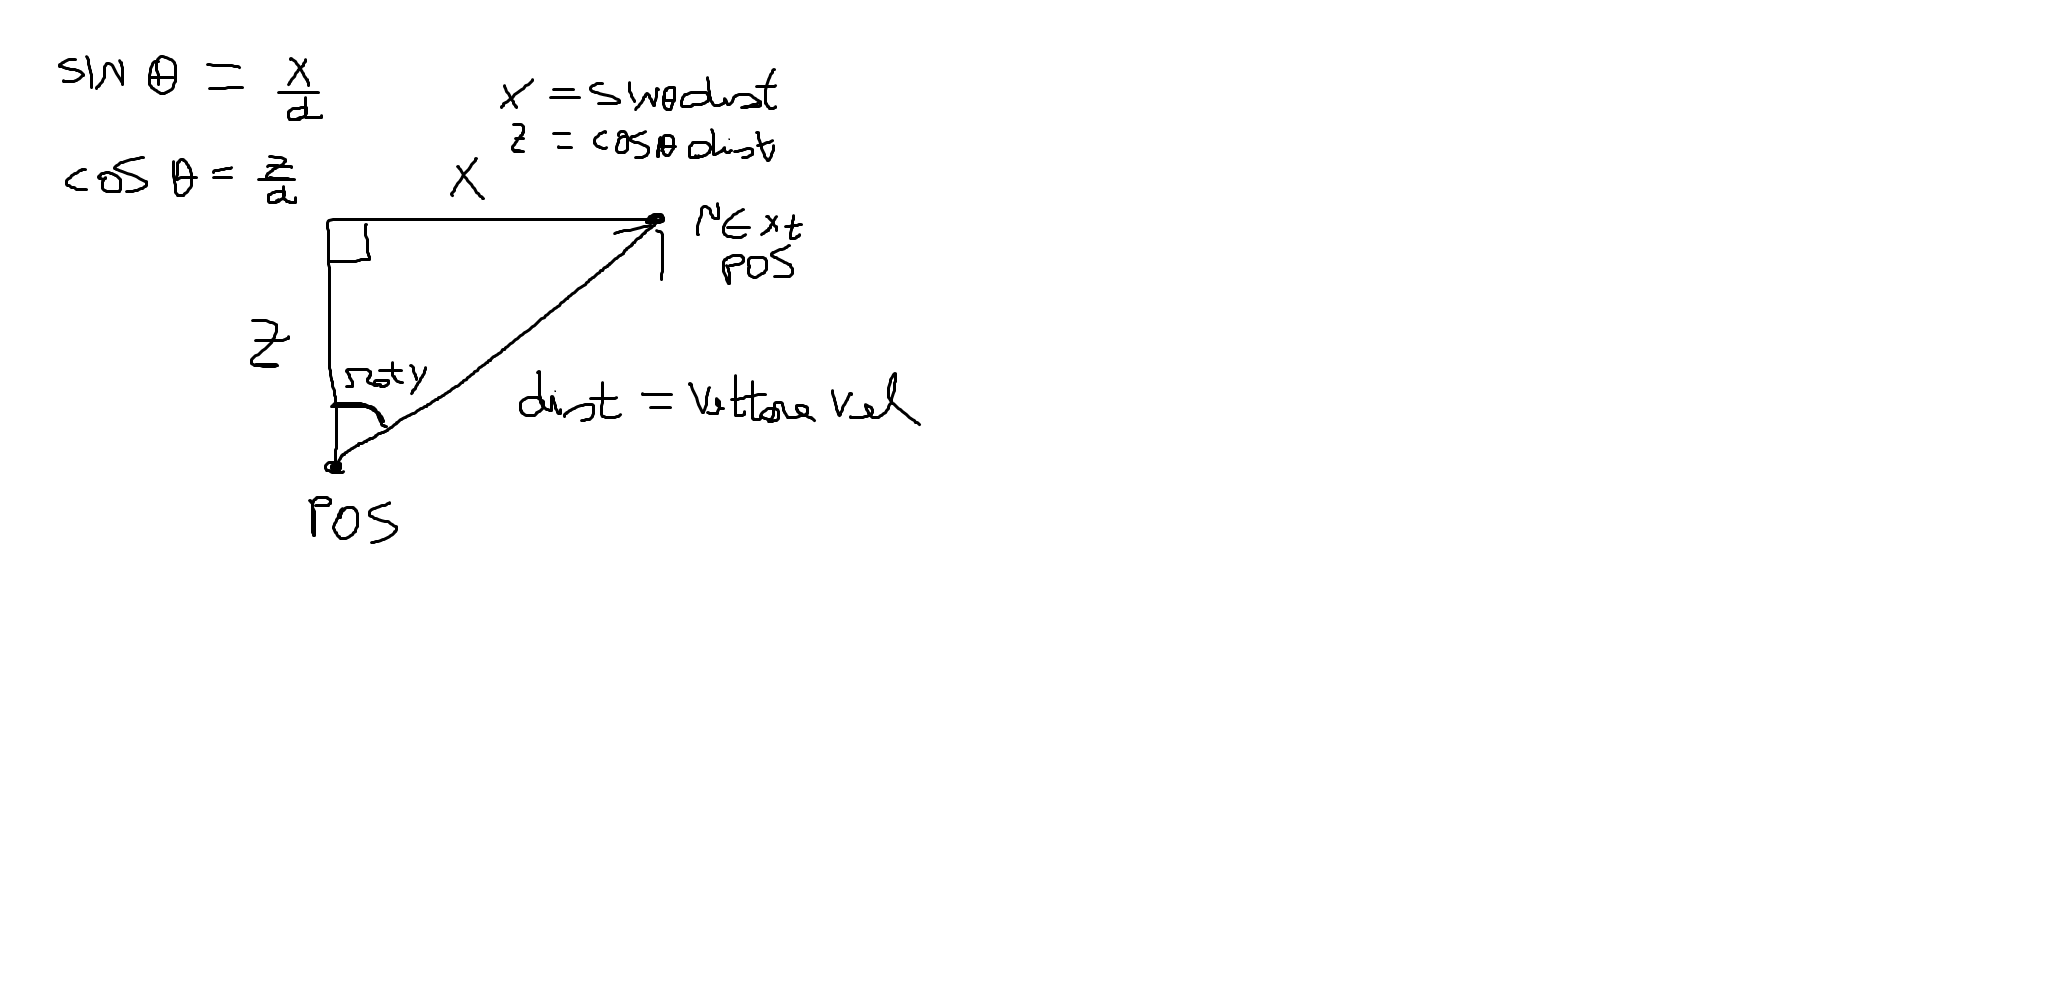 sin θ = x/d
x = sinθ dist
z = cosθ dist
cos θ = z/d
X
NExt
POS
Z
roty
dist = Vettore vel
POS